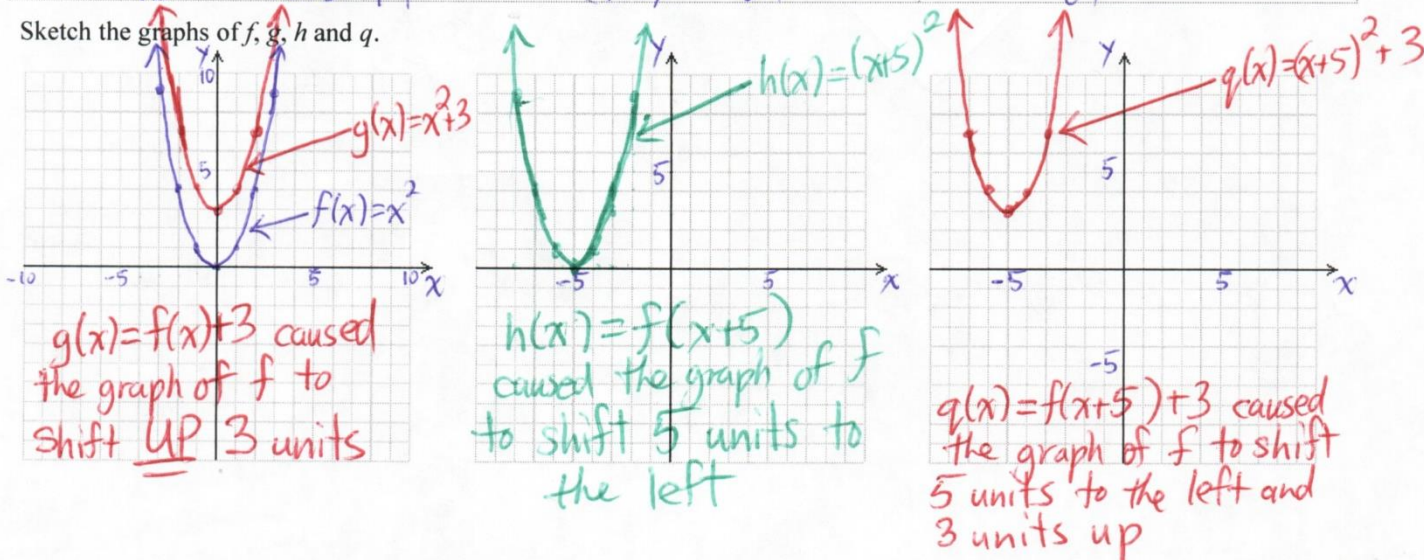 Sketch the graphs of f, g, h and q.
y
10
5
-10
-5
5
10
x
g(x)=x²+3
f(x)=x²
g(x)=f(x)+3 caused
the graph of f to
shift UP 3 units
y
5
-5
5
x
h(x)=(x+5)²
h(x)=f(x+5)
caused the graph of f
to shift 5 units to
the left
y
5
-5
5
x
-5
q(x)=(x+5)²+3
q(x)=f(x+5)+3 caused
the graph of f to shift
5 units to the left and
3 units up